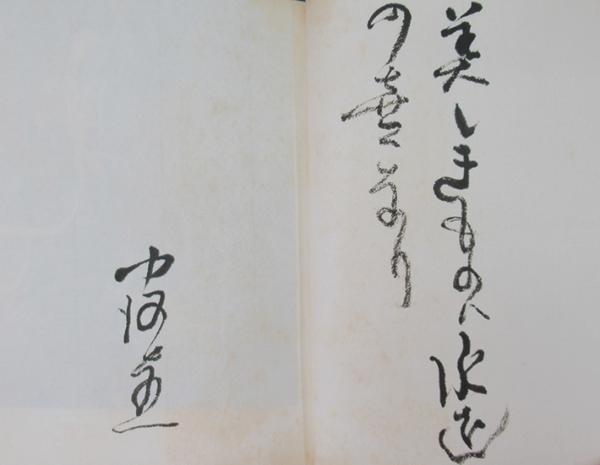 美しきものハ永遠
の喜なり
中河与一